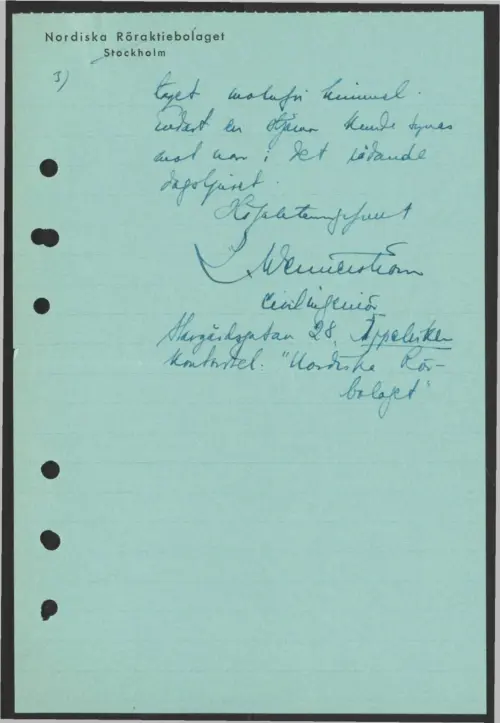 Nordiska Röraktiebolaget
Stockholm
3)
molnfri himmel.
en stjärna kunde synas
mot i det rådande
dagsljuset.
Högaktningsfullt
Wennerström
Civilingenjör
28, Äppelviken
Kontorstel: "Nordiska Rör-
bolaget"